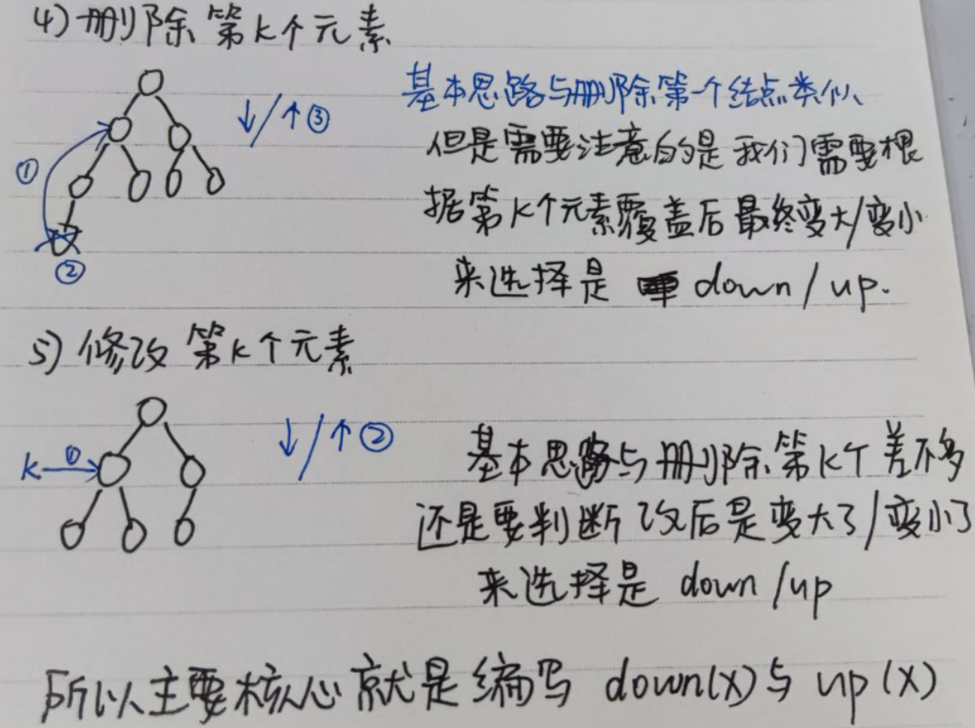 4) 删除第k个元素
基本思路与删除第一个结点类似
↓/↑③
但是需要注意的是我们需要根
①
据第k个元素覆盖后最终变大/变小
②
来选择是 down/up.
5) 修改第k个元素
k ①
↓/↑②
基本思路与删除第k个差不多
还是要判断改后是变大了/变小了
来选择是 down/up
所以主要核心就是编写 down(x)与 up(x)